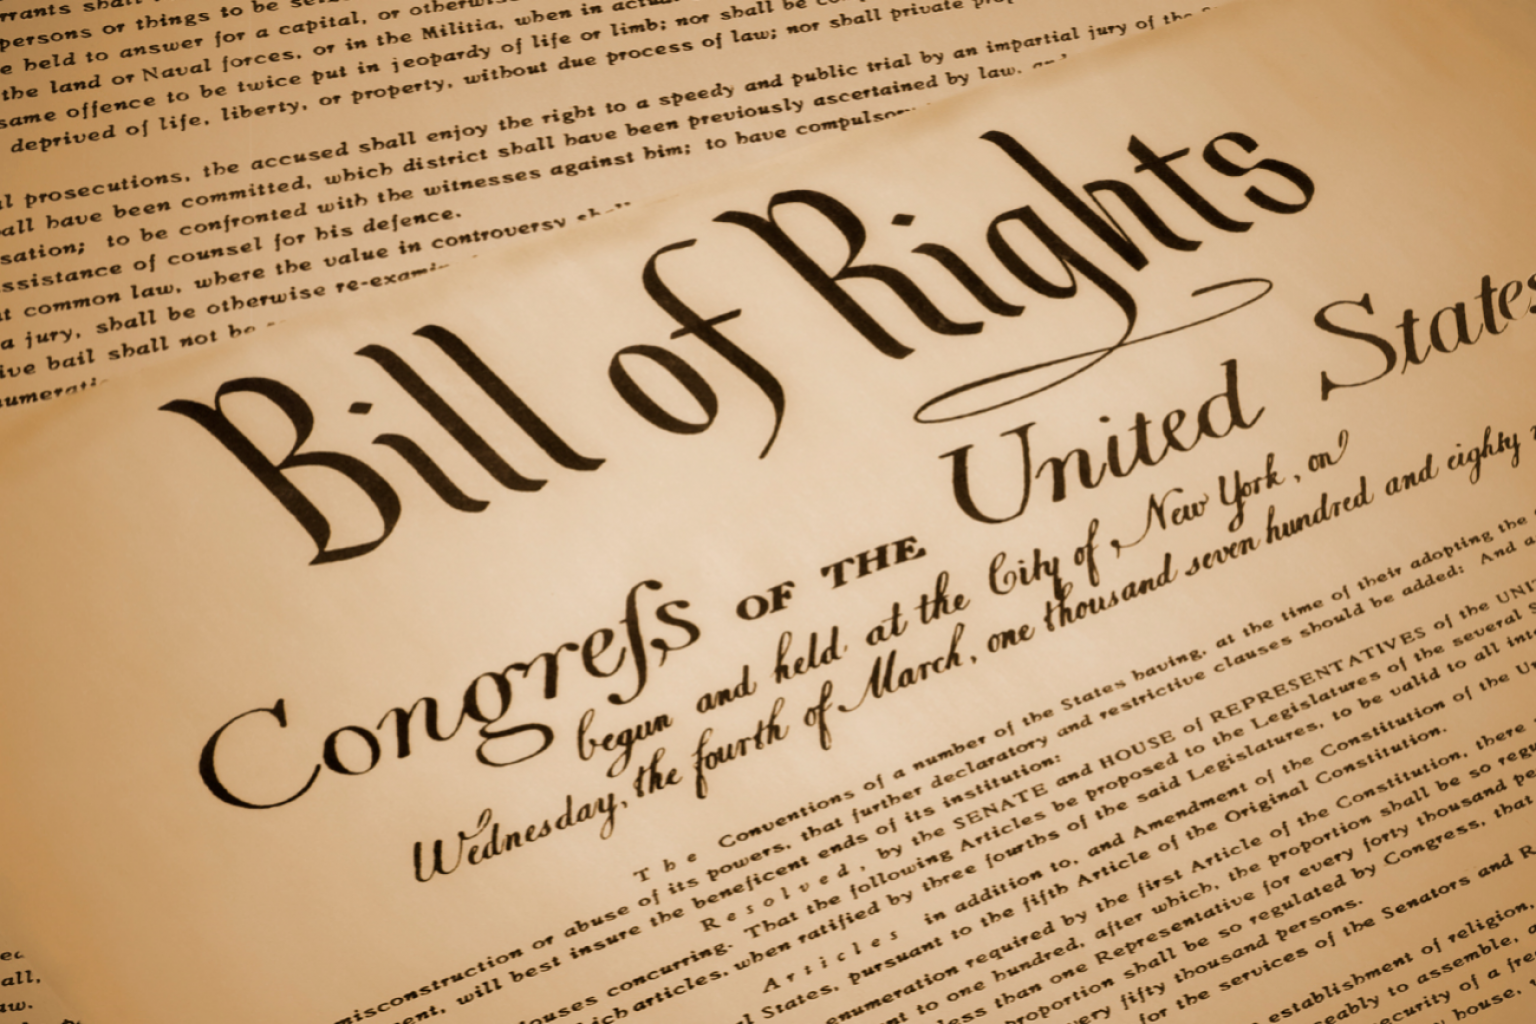 rrants shall
persons or things to be
e held to answer for a capital, or otherwis
the land or Naval forces, or in the Militia, when in actu
same offence to be twice put in jeopardy of life or limb; nor shall be co
deprived of life, liberty, or property, without due process of law; nor shall private prop
l prosecutions, the accused shall enjoy the right to a speedy and public trial by an impartial jury of the
all have been committed, which district shall have been previously ascertained by law, and
sation; to be confronted with the witnesses against him; to have compulsor
ssistance of counsel for his defence.
t common law, where the value in controversy shall
a jury, shall be otherwise re-examin
ive bail shall not be
numerati
Bill of Rights
Congreſs OF THE United States
begun and held at the City of New York, on
Wednesday, the fourth of March, one thousand seven hundred and eighty
The Conventions of a number of the States having, at the time of their adopting the
misconstruction or abuse of its powers, that further declaratory and restrictive clauses should be added: And a
ent, will best insure the beneficent ends of its institution:
Resolved, by the SENATE and HOUSE of REPRESENTATIVES of the UNIT
ouses concurring. That the following Articles be proposed to the Legislatures of the several S
ich articles, when ratified by three fourths of the said Legislatures, to be valid to all inte
Articles in addition to, and Amendment of the Constitution of the Un
l States, pursuant to the fifth Article of the Original Constitution.
enumeration required by the first Article of the Constitution, there
nt to one hundred, after which, the proportion shall be so regu
less than one Representative for every forty thousand pe
proportion shall be so regulated by Congress, that
very fifty thousand persons.
for the services of the Senators and R
establishment of religion,
eably to assemble, a
ecurity of a fre
house,
all,
aw.